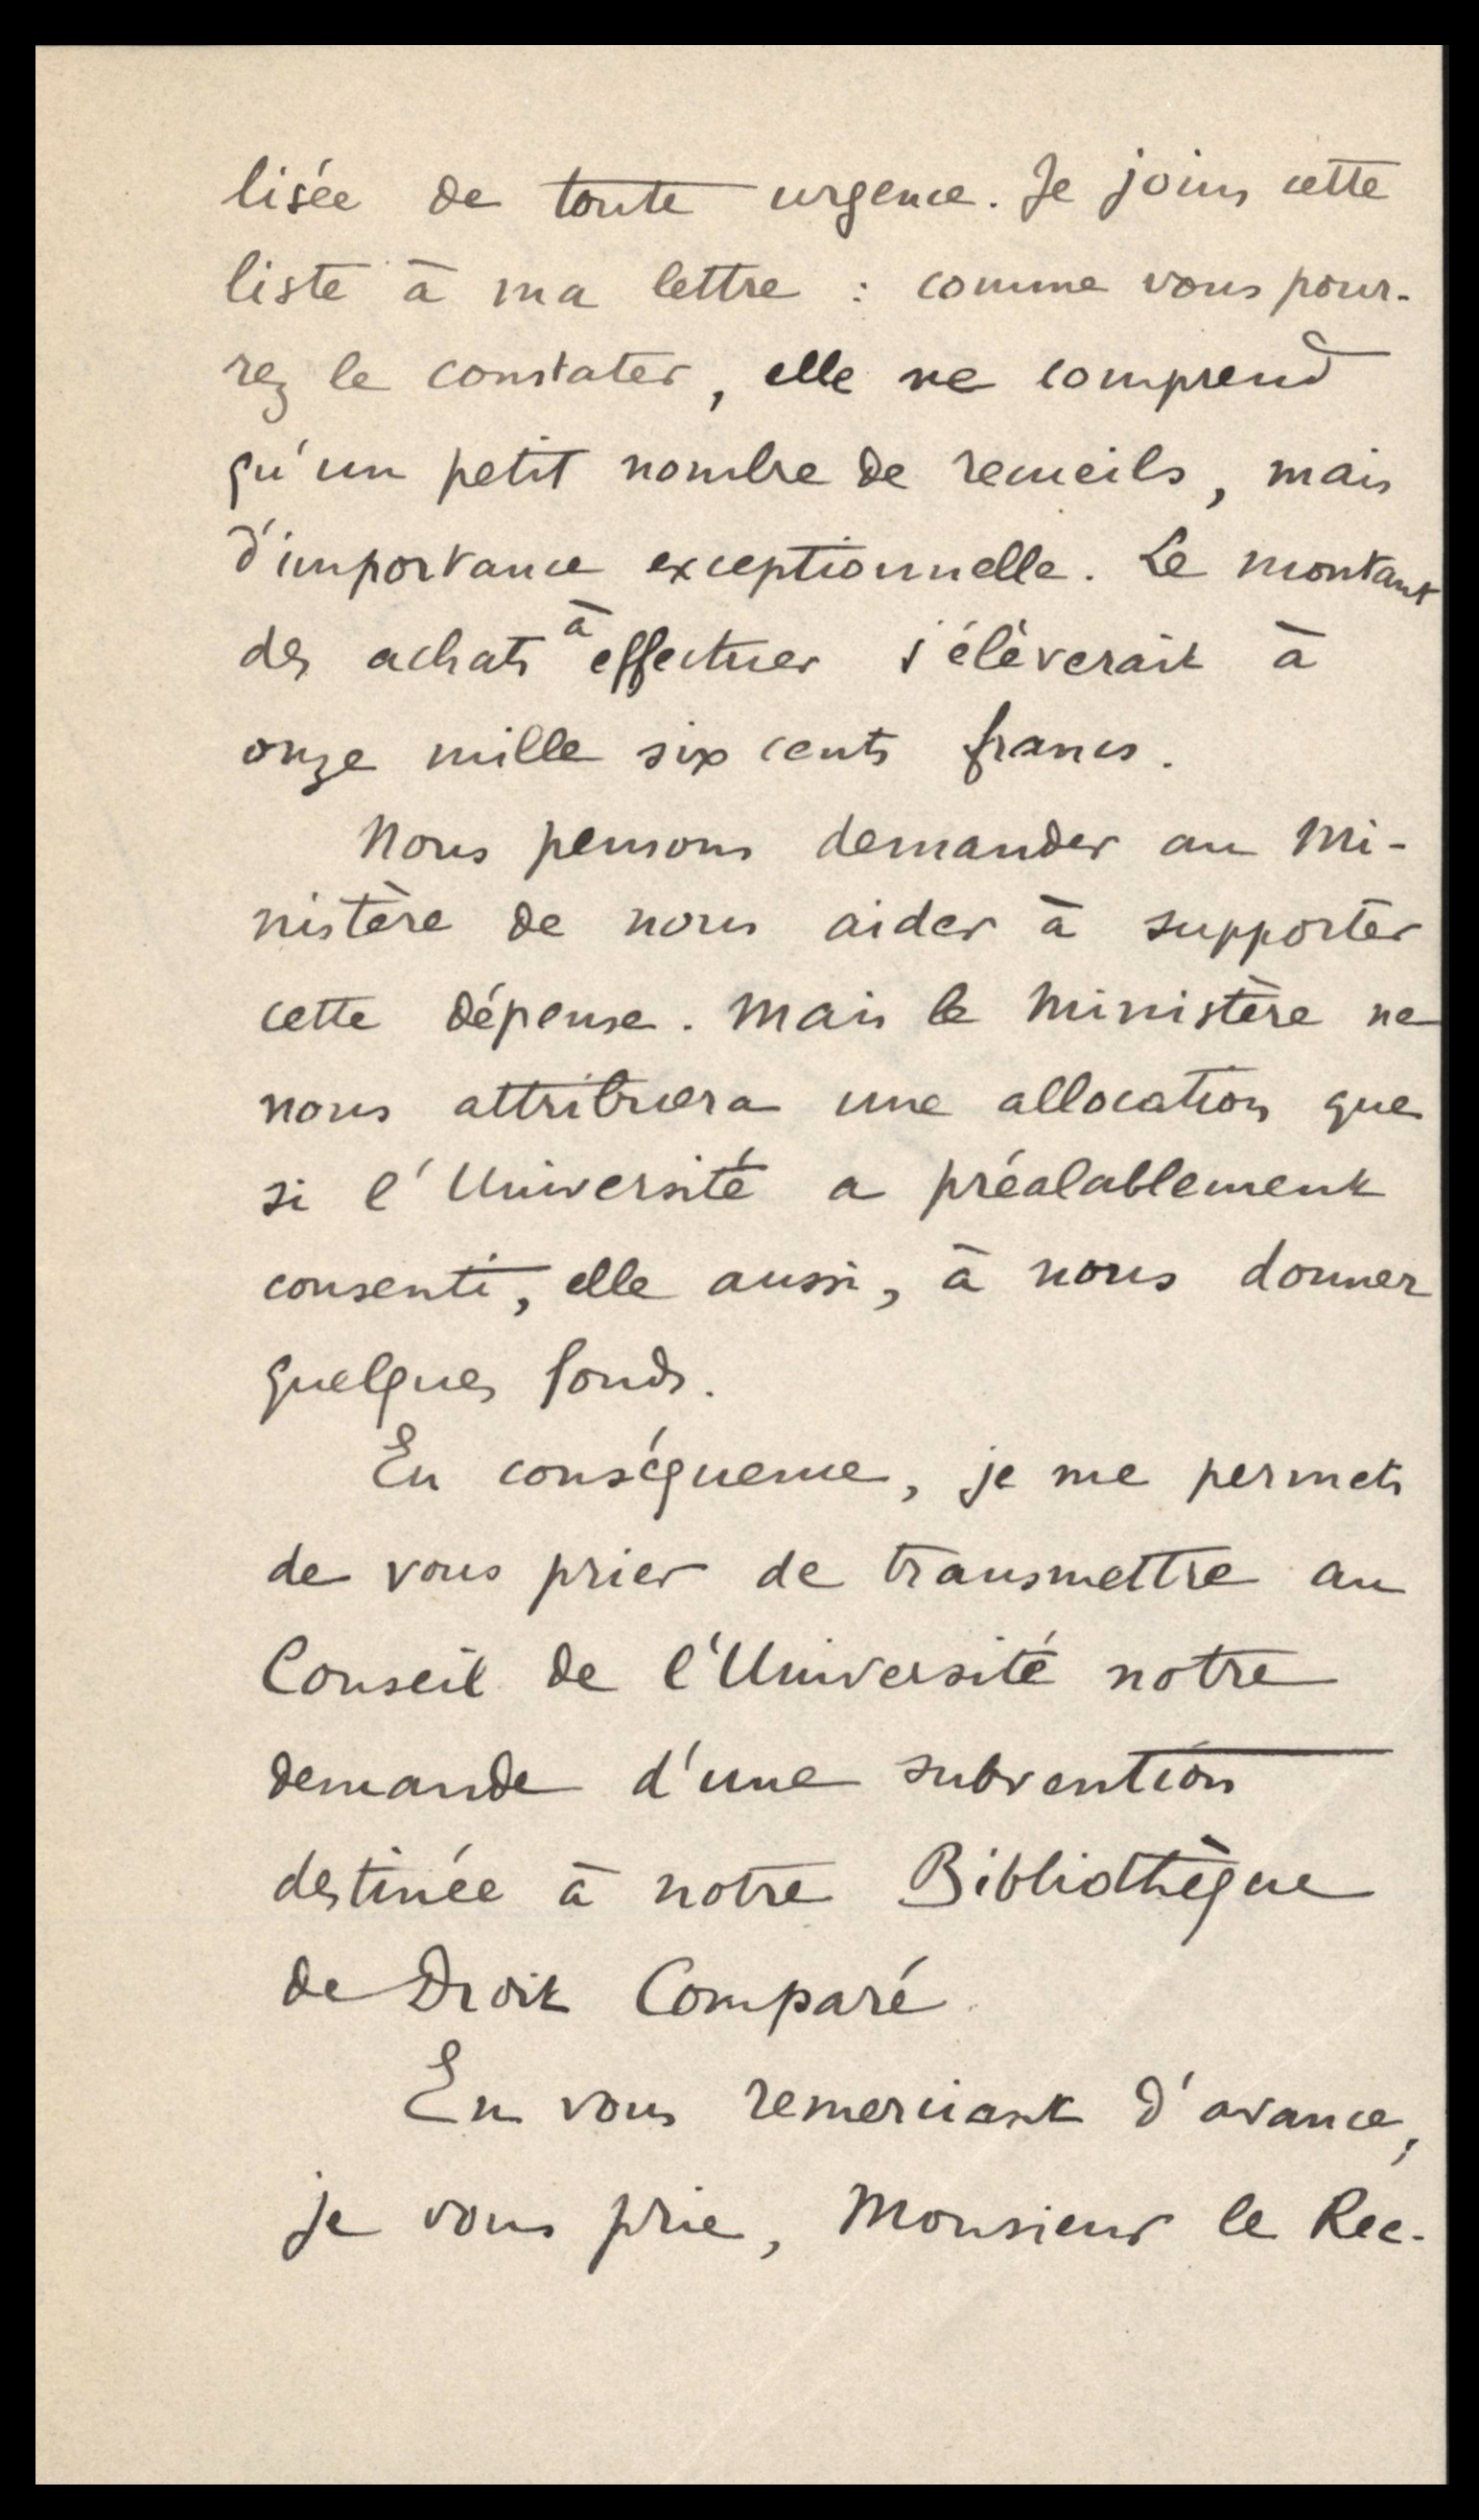 lisée de toute urgence. Je joins cette
liste à ma lettre : comme vous pour-
rez le constater, elle ne comprend
qu'un petit nombre de recueils, mais
d'importance exceptionnelle. Le montant
des achats à effectuer s'élèverait à
onze mille six cents francs.
Nous pensons demander au Mi-
nistère de nous aider à supporter
cette dépense. Mais le Ministère ne
nous attribuera une allocation que
si l'Université a préalablement
consenti, elle aussi, à nous donner
quelques fonds.
En conséquence, je me permets
de vous prier de transmettre au
Conseil de l'Université notre
demande d'une subvention
destinée à notre Bibliothèque
de Droit Comparé.
En vous remerciant d'avance,
je vous prie, Monsieur le Rec-